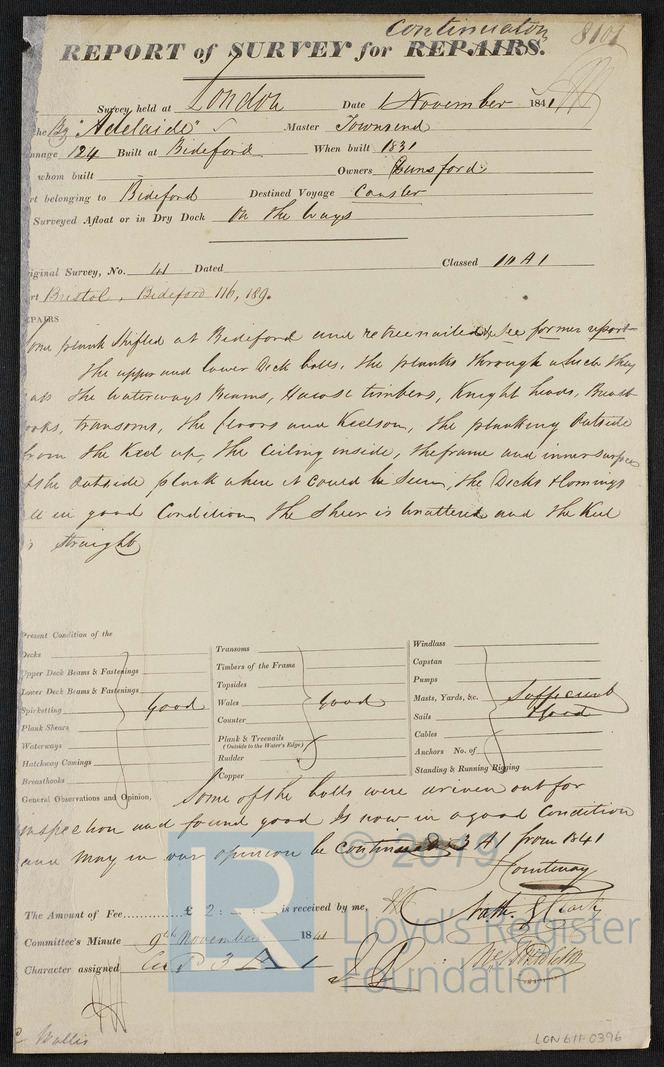 Continuation 8101
REPORT of SURVEY for REPAIRS.
Survey held at London Date 1 November 1841
he Bg "Adelaide" Master Townsend
nnage 124 Built at Bideford When built 1831
whom built — Owners Chunsford
rt belonging to Bideford Destined Voyage Coaster
Surveyed Afloat or in Dry Dock On the Ways
iginal Survey, No. 41 Dated Classed 10 A 1
rt Bristol, Bideford 116, 189.
EPAIRS
plank shifted at Bideford and retreenailed, See former report
The upper and lower Deck bolts, the planks through which they
the Waterways Beams, Hawse timbers, Knight heads, Breast
ooks, transoms, the floors and Keelson, the planking Outside
from the Keel up, the Ceiling inside, the frame and inner surfaces
of the Outside plank where it could be seen, the Decks & Comings
ll in good Condition the Sheer is unaltered and the Keel
is straight
Present Condition of the
Decks
Upper Deck Beams & Fastenings
Lower Deck Beams & Fastenings
Spirketting Good
Plank Shears
Waterways
Hatchway Comings
Breasthooks
Transoms
Timbers of the Frame
Topsides
Wales Good
Counter
Plank & Treenails
(Outside to the Water's Edge)
Rudder
Copper
Windlass
Capstan
Pumps
Masts, Yards, &c. Sufficient
Sails Good
Cables
Anchors No. of
Standing & Running Rigging
General Observations and Opinion, Some of the bolts were driven out for
inspection and found good Is now in a good Condition
and may in our opinion be continued 3 A 1 from 1841
Courtenay
The Amount of Fee......£ 2 : is received by me,
Nathl. S. Clark
Committee's Minute 9th November 1841
Character assigned 3 A 1
Wallis
© 2019
LR
Lloyd's Register
Foundation
LON611-0396